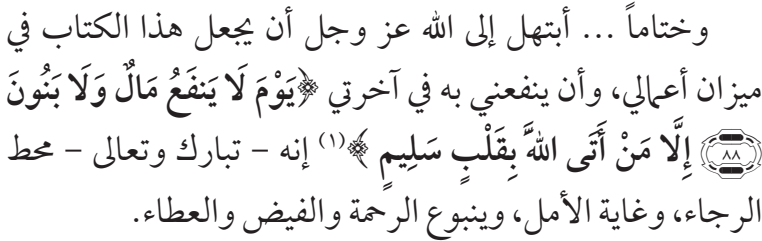 وختاماً ... أبتهل إلى الله عز وجل أن يجعل هذا الكتاب في
ميزان أعمالي، وأن ينفعني به في آخرتي ﴿يَوْمَ لَا يَنفَعُ مَالٌ وَلَا بَنُونَ
﴿٨٨﴾ إِلَّا مَنْ أَتَى اللهَّ بِقَلْبٍ سَلِيمٍ ﴾(١) إنه - تبارك وتعالى - محط
الرجاء، وغاية الأمل، وينبوع الرحمة والفيض والعطاء.